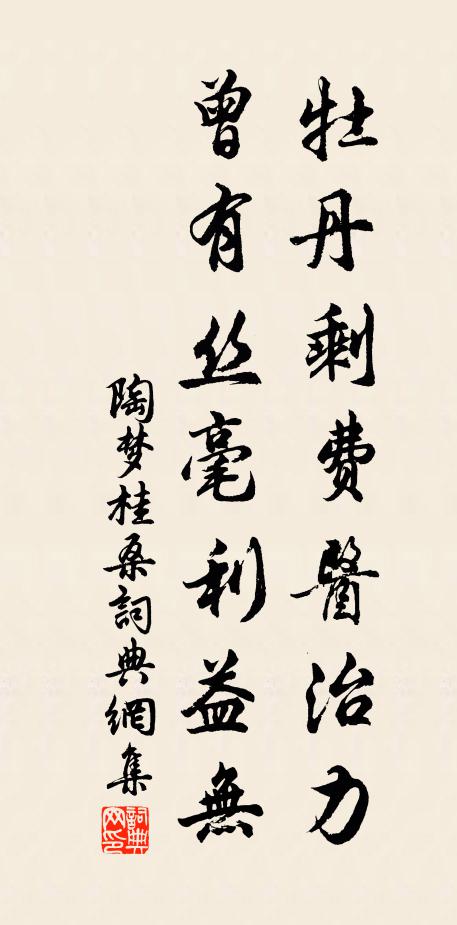 牡丹剩費醫治力
曾有丝毫利益無
陶梦桂桑詞典網集
詞典网印